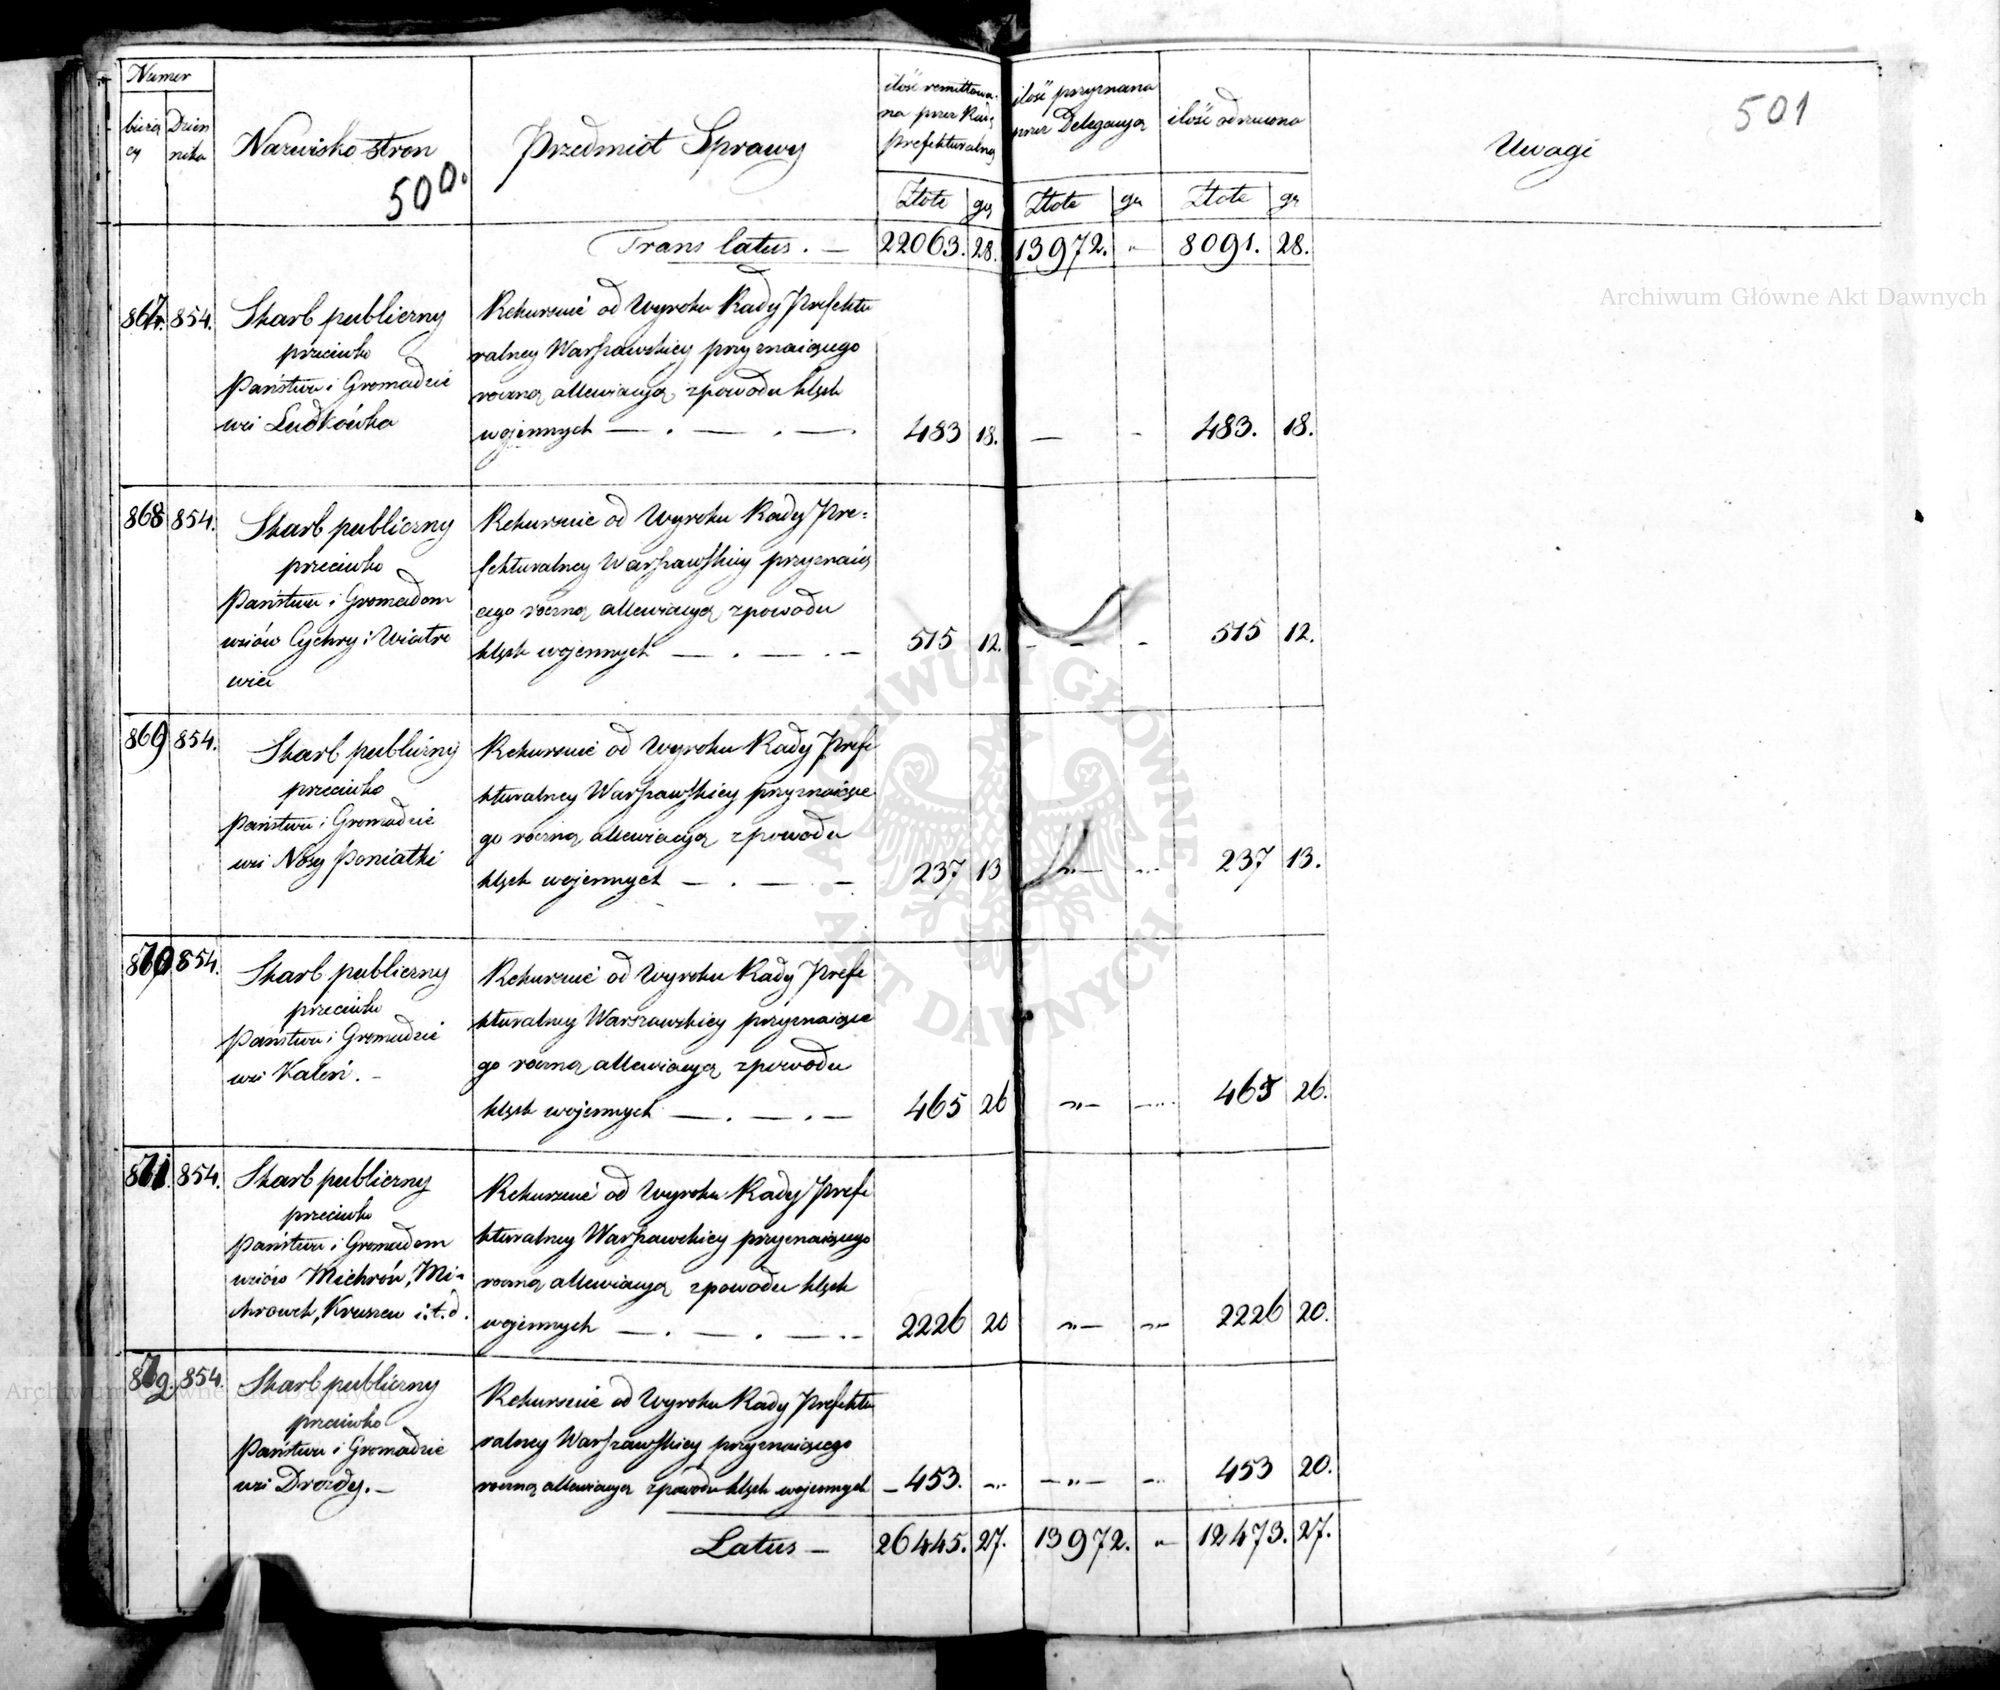 Numer
bieżą
cy
Dzien
nika
Nazwisko stron
500.
Przedmiot Sprawy
ilość remittowa-
na przez Radę
Prefekturalną
ilość przyznana
przez Delegacyą
ilość odrzucona
Uwagi
501
Złote gr Złote gr Złote gr
Trans latus. — 22063. 28. 13972. " 8091. 28.
Archiwum Główne Akt Dawnych
867. 854. Skarb publiczny
przeciwko
Państwu i Gromadzie
wsi Ludkówka
Rekursuie od Wyroku Rady Prefektu
ralney Warszawskiey przyznaiącego
roczną allewiacyą z powodu klęsk
woiennych — . — . — . 483 18. — - 483. 18.
868 854. Skarb publiczny
przeciwko
Państwu i Gromadom
wsiów Cychry i Wiatro
wiec
Rekursuie od Wyroku Rady Pre=
fekturalney Warszawskiey przyznaią
cego roczną allewiacyą z powodu
klęsk woiennych — . — . — 515 12. - - - 515 12.
869 854. Skarb publiczny
przeciwko
Państwu i Gromadzie
wsi Nosy Poniatki
Rekursuie od Wyroku Rady Prefe
kturalney Warszawskiey przyznaiące
go roczną allewiacyą z powodu
klęsk woiennych — . — . — 237 13 —"— " 237 13.
870 854. Skarb publiczny
przeciwko
Państwu i Gromadzie
wsi Kaleń. —
Rekursuie od Wyroku Rady Prefe
kturalney Warszawskiey przyznaiące
go roczną allewiacyą z powodu
klęsk woiennych — . — . — 465 26 —"— —"— 465 26.
871. 854. Skarb publiczny
przeciwko
Państwu i Gromadom
wsiów Michrów, Mi-
chrowek, Kruszew i.t.d.
Rekursuie od Wyroku Rady Prefe
kturalney Warszawskiey przyznaiącego
roczną allewiacyą z powodu klęsk
woiennych — . — . — .. 2226 20 —"— —"— 2226 20.
872. 854. Skarb publiczny
przeciwko
Państwu i Gromadzie
wsi Drozdy. —
Rekursuie od Wyroku Rady Prefektu
ralney Warszawskiey przyznaiącego
roczną allewiacyą z powodu klęsk woiennych — 453. —"— —"— —"— 453 20.
Latus — 26445. 27. 13972. " 12473. 27.
ARCHIWUM GŁÓWNE · AKT DAWNYCH ·
Archiwum Główne Akt Dawnych